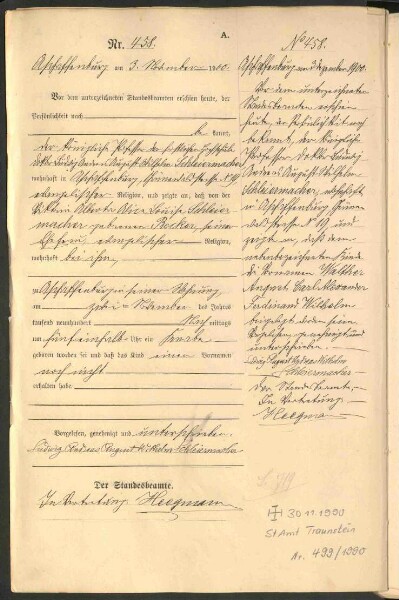 A.
Nr. 458.
Aschaffenburg am 3. November 1900.
Vor dem unterzeichneten Standesbeamten erschien heute, der
Persönlichkeit nach
be kannt,
der Königliche Professor der
Doktor Ludwig Andreas August Wilhelm Schleiermacher
wohnhaft in Aschaffenburg, Grünewaldstrasse № 19,
evangelischer Religion, und zeigte an, daß von der
Alice Louise Schleier-
macher, gebornen Becker, seiner
Ehefrau, evangelischer Religion,
wohnhaft bei ihm,
zu Aschaffenburg in seiner Wohnung,
am zweiten November des Jahres
tausend neunhundert Nachmittags
um fünfeinhalb Uhr ein Knabe
geboren worden sei und daß das Kind einen Vornamen
noch nicht
erhalten habe.
Vorgelesen, genehmigt und unterschrieben.
Ludwig Andreas August Wilhelm Schleiermacher
Der Standesbeamte.
In Vertretung. Heegmann
No 458.
Aschaffenburg, am Dezember 1900.
Vor dem unterzeichneten
Standesbeamten erschien
heute, der Persönlichkeit nach
bekannt, der Königliche
Professor Doktor Ludwig
Andreas August Wilhelm
Schleiermacher, wohnhaft
in Aschaffenburg, Grüne-
waldstrasse № 19, und
zeigte an, daß dem
nebenbezeichneten Kinde
die Vornamen Walther
August Carl Alexander
Ferdinand Wilhelm
beigelegt worden seien.
Vorgelesen, genehmigt und
unterschrieben.
Ludwig August Andreas Wilhelm
Schleiermacher
Der Standesbeamte.
In Vertretung.
Heegmann
30.11.1990
StAmt Traunstein
Nr. 499/1990